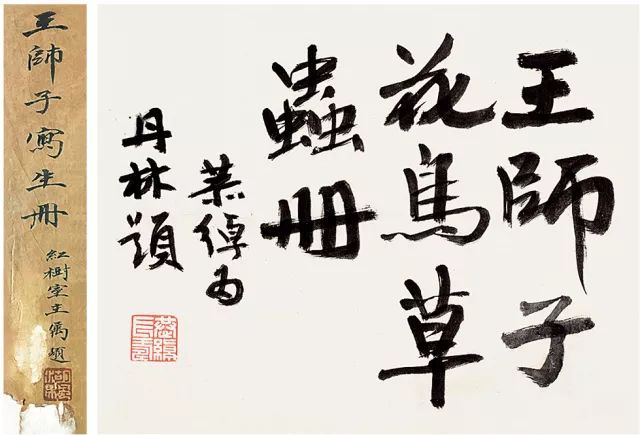 王師子寫生冊
紅樹室主屬題
王師子
花鳥草
蟲冊
恭綽為
丹林題